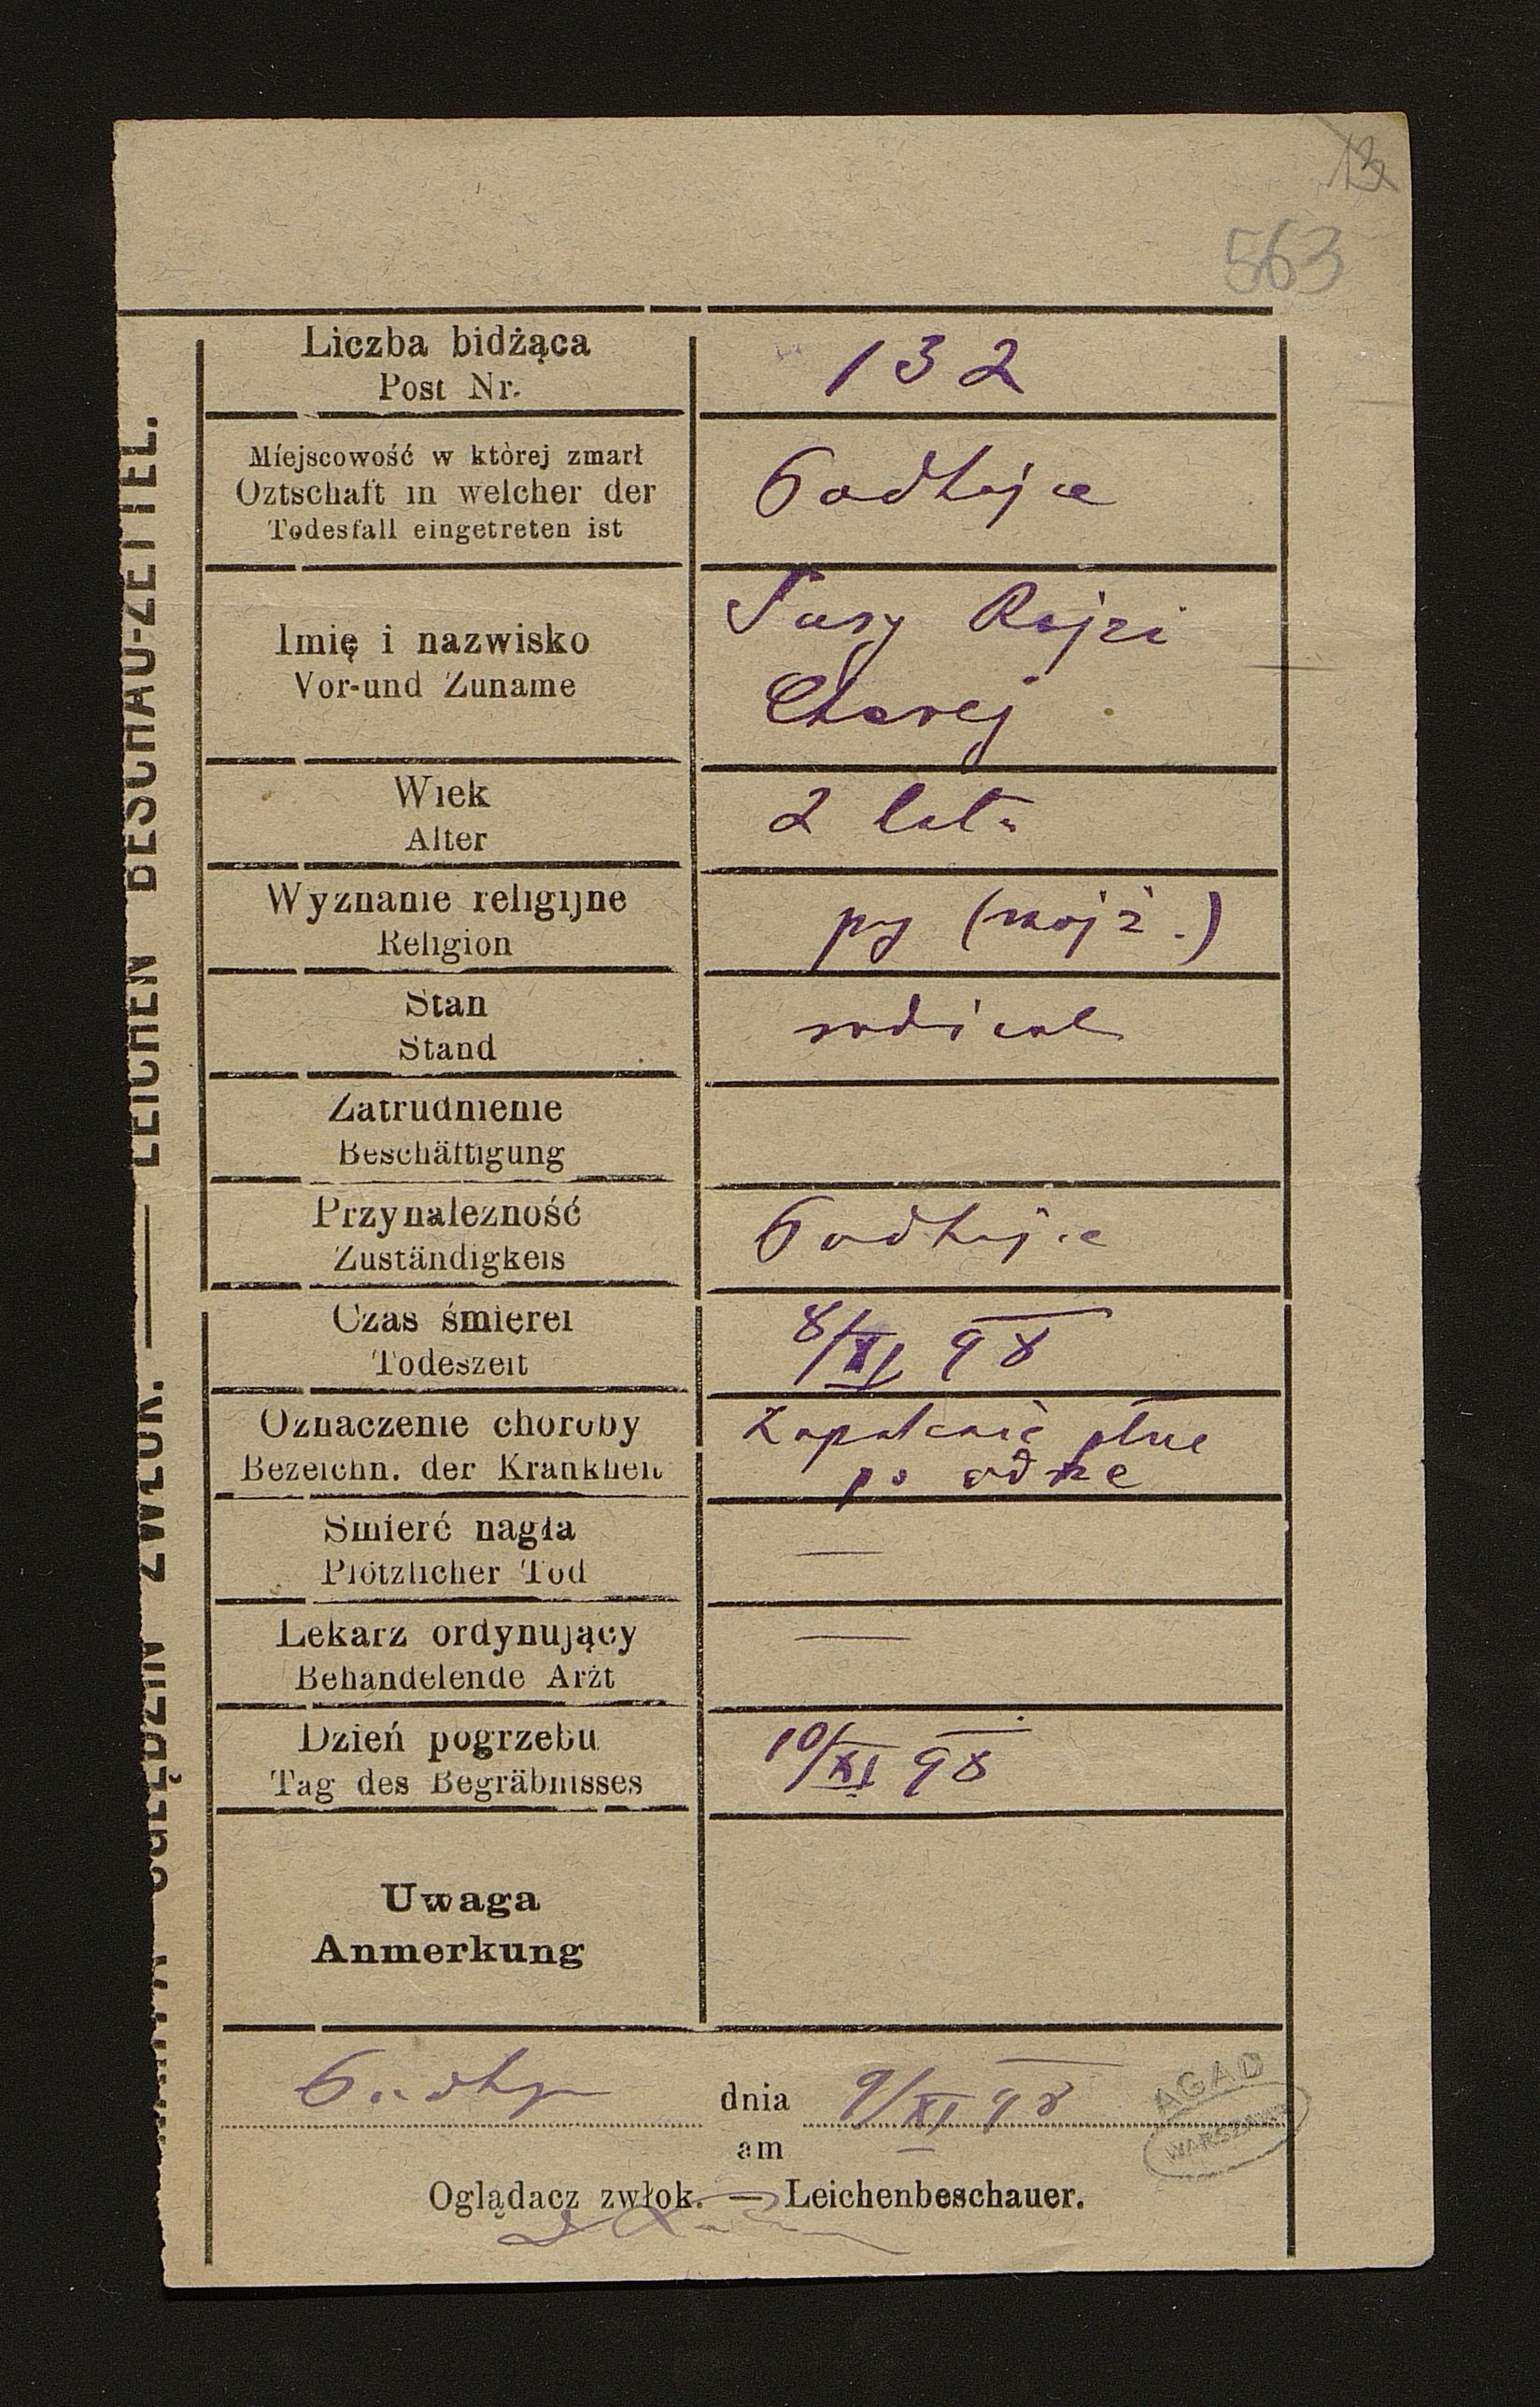 563
KARTA OGLĘDZIN ZWŁOK. — LEICHEN BESCHAU-ZETTEL.
Liczba bidżąca
Post Nr.
132
Miejscowość w której zmarł
Oztschaft in welcher der
Todesfall eingetreten ist
Podhajce
Imię i nazwisko
Vor-und Zuname
Chavej
Wiek
Alter
2 lata
Wyznanie religijne
Religion
(mojż.)
Stan
Stand
Zatrudnienie
Beschäftigung
Przynalezność
Zuständigkeis
Podhajce
Czas śmierei
Todeszeit
8/XI 98
Oznaczenie choroby
Bezeichn. der Krankheit
Zapalenie płuc
po odrze
Smierć nagła
Plötzlicher Tod
—
Lekarz ordynujący
Behandelende Arżt
—
Dzień pogrzebu
Tag des Begräbnisses
10/XI 98
Uwaga
Anmerkung
dnia 9/XI 98
am
AGAD
WARSZAWA
Oglądacz zwłok. — Leichenbeschauer.